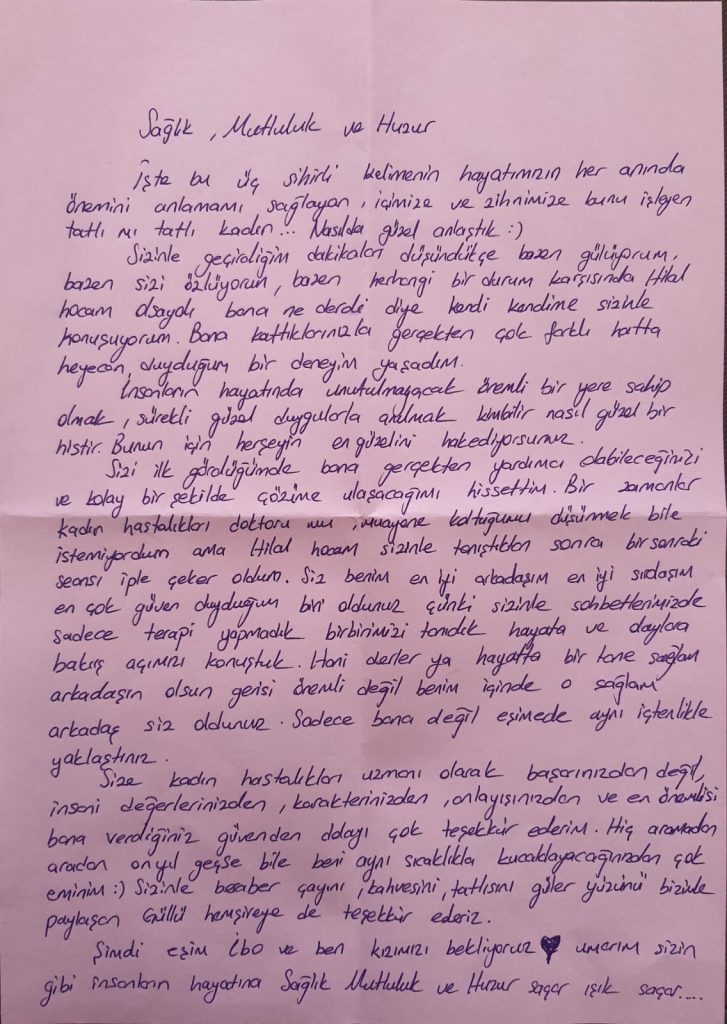 Sağlık, Mutluluk ve Huzur
İşte bu üç sihirli kelimenin hayatımızın her anında
önemini anlamamı sağlayan, içimize ve zihnimize bunu işleyen
tatlı mı tatlı kadın... Nasılda güzel anlaştık :)
Sizinle geçirdiğim dakikaları düşündükçe bazen gülüyorum,
bazen sizi özlüyorum, bazen herhangi bir durum karşısında Hilal
hocam olsaydı bana ne derdi diye kendi kendime sizinle
konuşuyorum. Bana kattıklarınızla gerçekten çok farklı hatta
heyecan duyduğum bir deneyim yaşadım.
İnsanların hayatında unutulmayacak önemli bir yere sahip
olmak, sürekli güzel duygularla anılmak kimbilir nasıl güzel bir
histir. Bunun için herşeyin en güzelini hakediyorsunuz.
Sizi ilk gördüğümde bana gerçekten yardımcı olabileceğinizi
ve kolay bir şekilde çözüme ulaşacağımı hissettim. Bir zamanlar
kadın hastalıkları doktoru mu, muayene koltuğunu düşünmek bile
istemiyordum ama Hilal hocam sizinle tanıştıktan sonra bir sonraki
seansı iple çeker oldum. Siz benim en iyi arkadaşım en iyi sırdaşım
en çok güven duyduğum biri oldunuz çünki sizinle sohbetlerimizde
sadece terapi yapmadık birbirimizi tanıdık hayata ve olaylara
bakış açımızı konuştuk. Hani derler ya hayatta bir tane sağlam
arkadaşın olsun gerisi önemli değil benim içinde o sağlam
arkadaş siz oldunuz. Sadece bana değil eşimede aynı içtenlikle
yaklaştınız.
Size kadın hastalıkları uzmanı olarak başarınızdan değil,
insani değerlerinizden, karakterinizden, anlayışınızdan ve en önemlisi
bana verdiğiniz güvenden dolayı çok teşekkür ederim. Hiç aramadan
aradan onyıl geçse bile beni aynı sıcaklıkla kucaklayacağınızdan çok
eminim :) Sizinle beraber çayını, kahvesini, tatlısını güler yüzünü bizimle
paylaşan Güllü hemşireye de teşekkür ederiz.
Şimdi eşim İbo ve ben kızımızı bekliyoruz ♥ umarım sizin
gibi insanların hayatına Sağlık Mutluluk ve Huzur saçar ışık saçar....